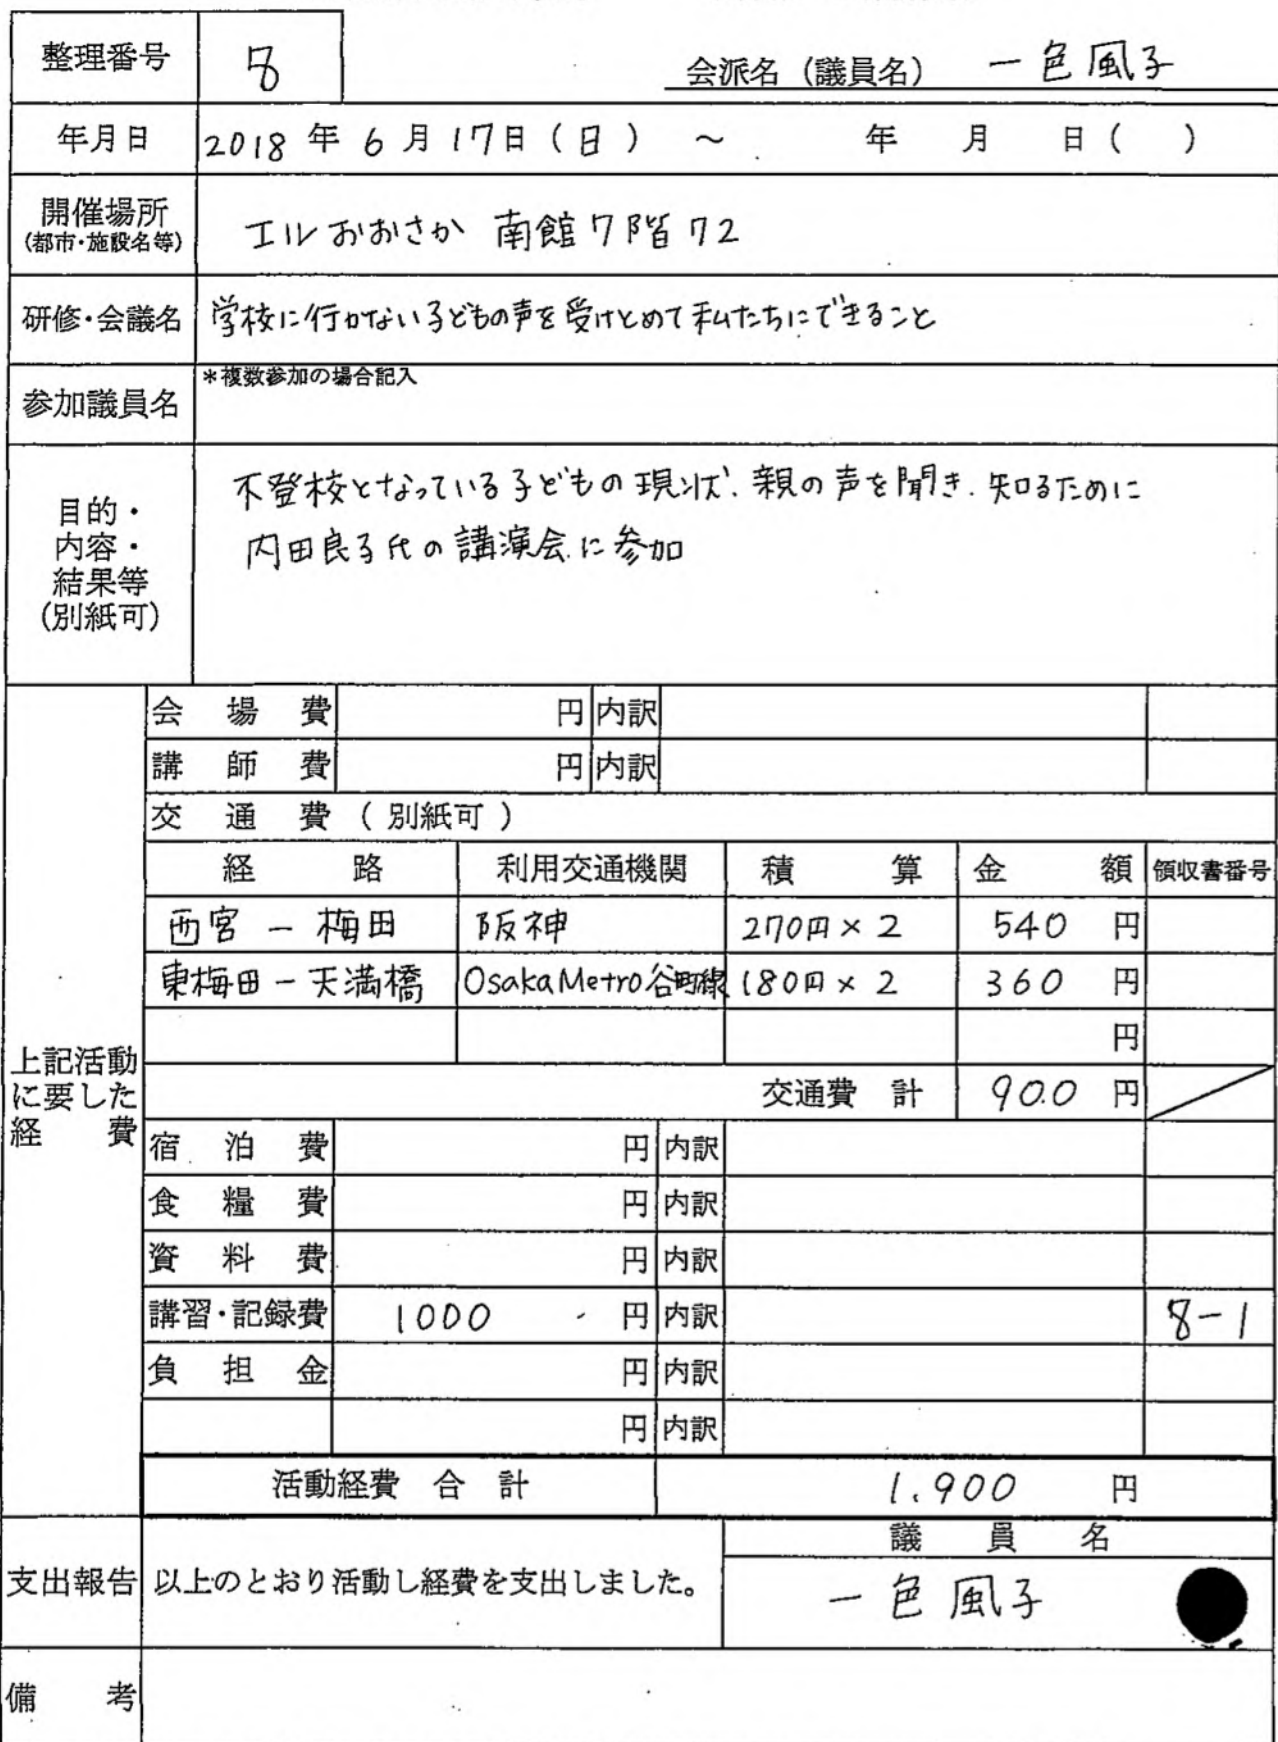 整理番号 8 会派名（議員名） 一色風子
年月日 2018 年 6 月 17日（日） ～ 年 月 日（ ）
開催場所
(都市・施設名等)
エルおおさか 南館7階72
研修・会議名 学校に行かない子どもの声を受けとめて私たちにできること
参加議員名 *複数参加の場合記入
目的・
内容・
結果等
(別紙可)
不登校となっている子どもの現状、親の声を聞き、知るために
内田良子氏の講演会に参加
上記活動
に要した
経 費
会 場 費 円 内訳
講 師 費 円 内訳
交 通 費 （別紙可）
経 路 利用交通機関 積 算 金 額 領収書番号
西宮 － 梅田 阪神 270円×2 540 円
東梅田－天満橋 OsakaMetro谷町線 180円×2 360 円
円
交通費 計 900 円
宿 泊 費 円 内訳
食 糧 費 円 内訳
資 料 費 円 内訳
講習・記録費 1000 円 内訳 8－1
負 担 金 円 内訳
円 内訳
活動経費 合 計 1,900 円
支出報告 以上のとおり活動し経費を支出しました。
議 員 名
一色風子
備 考